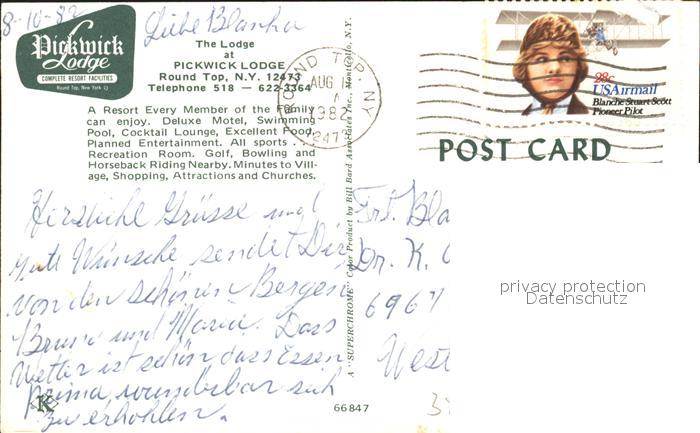 8-10-82
Liebe Blanka
Pickwick
Lodge
COMPLETE RESORT FACILITIES
Round Top, New York
The Lodge
at
PICKWICK LODGE
Round Top, N.Y. 12473
Telephone 518 — 622-3364
A Resort Every Member of the Family
can enjoy. Deluxe Motel, Swimming
Pool, Cocktail Lounge, Excellent Food,
Planned Entertainment. All sports . . .
Recreation Room. Golf, Bowling and
Horseback Riding Nearby. Minutes to Vill-
age, Shopping, Attractions and Churches.
Herzliche Grüsse und
gute Wünsche sendet Dir
von den schönen Bergen
Bruno und Maria. Dass
Wetter ist schön dass Essen
Prima, wunderbar sich
zu erhohlen.
K
66847
A "SUPERCHROME" Color Product by Bill Bard Associates Inc., Monticello, N.Y.
ROUND TOP, NY
AUG
1982
1247
28c
USAirmail
Blanche Stuart Scott
Pioneer Pilot
POST CARD
Frl. Bla
Dr. K.
6967
West
privacy protection
Datenschutz